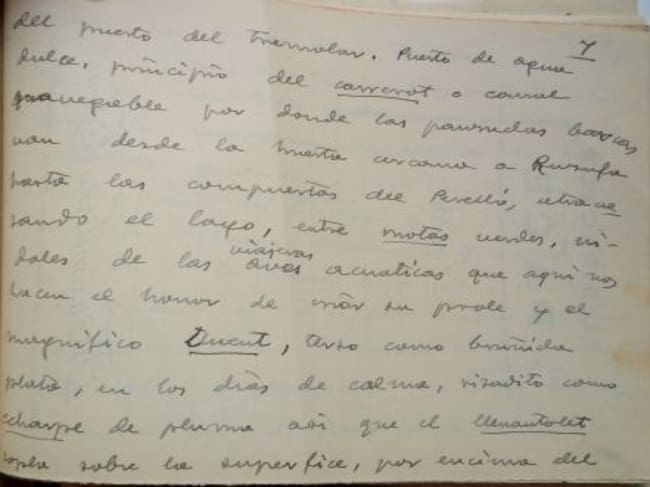 7
del puerto del Tremolar. Puerto de agua
dulce, principio del carrerot o canal
navegable por donde las panzudas barcas
van desde la huerta cercana a Ruzafa
hasta las compuertas del Perelló, atrave
sando el lago, entre motas verdes, ni-
viajeras
dales de las aves acuaticas que aqui nos
hacen el honor de criar su prole y el
magnífico Lluent, terso como bruñida
plata, en los días de calma, rizadito como
echarpe de pluma asi que el llevantolet
sopla sobre la superfice, por encima del